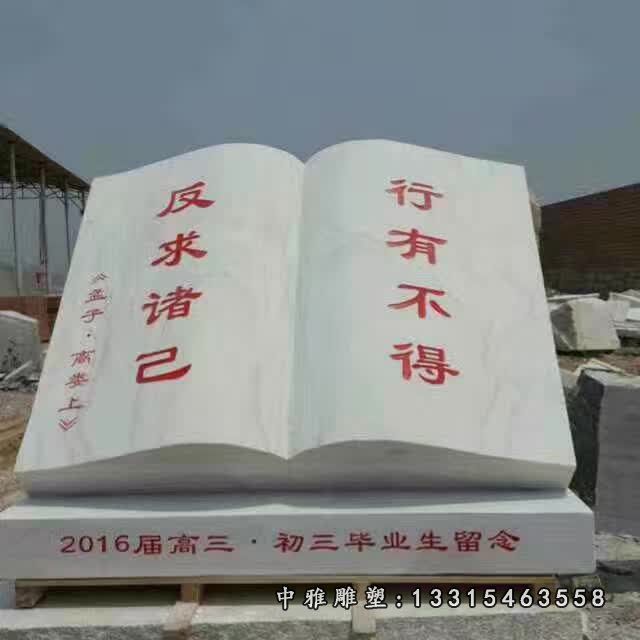 行有不得
反求诸己
《孟子·离娄上》
2016届高三·初三毕业生留念
中雅雕塑:13315463558